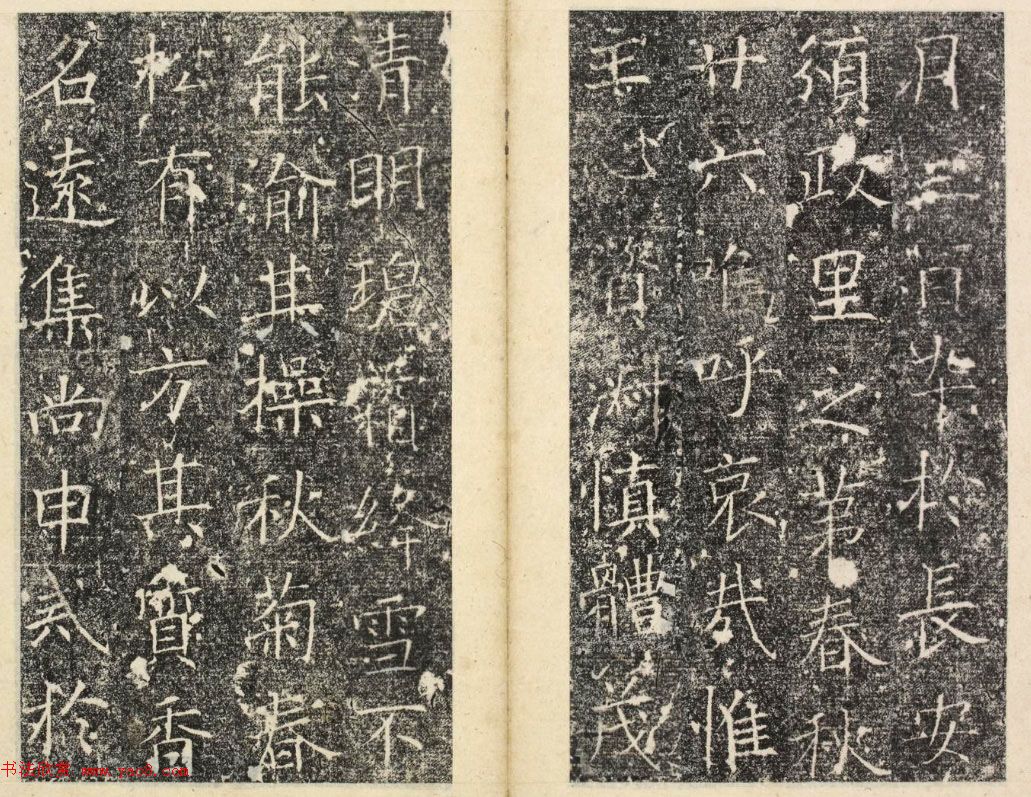 月三日卒於長安
須政里之第春秋
廿六嗚呼哀哉惟
王資淑慎體茂
清明碧霜絳雪不
能渝其操秋菊春
松有以方其寶香
名遠集尚申式於
书法欣赏 www.yac8.com